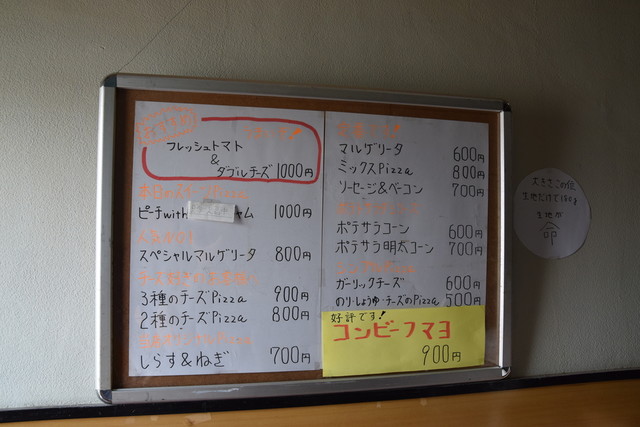 フレッシュトマト
&
ダブルチーズ 1000円
ピーチwith ャム 1000円
人気No.1!
スペシャルマルゲリータ 800円
3種のチーズPizza 900円
2種のチーズPizza 800円
しらす&ねぎ 700円
定番です!
マルゲリータ 600円
ミックスPizza 800円
ソーセージ&ベーコン 700円
ポテサラコーン 600円
ポテサラ明太コーン 700円
ガーリックチーズ 600円
のり・しょうゆ・チーズのPizza 500円
好評です!
コンビーフマヨ
900円
生地が
命